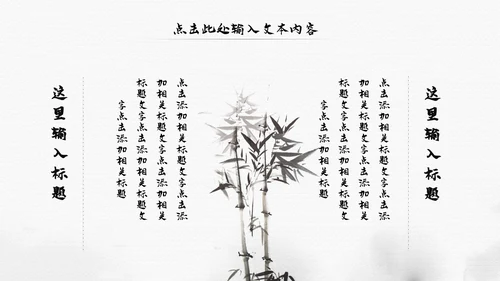 点击此处输入文本内容
这里输入标题
点击添加相关标题文字点击添
加相关标题文字点击添加相关
标题文字点击添加相关标题文
字点击添加相关标题
点击添加相关标题文字点击添
加相关标题文字点击添加相关
标题文字点击添加相关标题文
字点击添加相关标题
这里输入标题